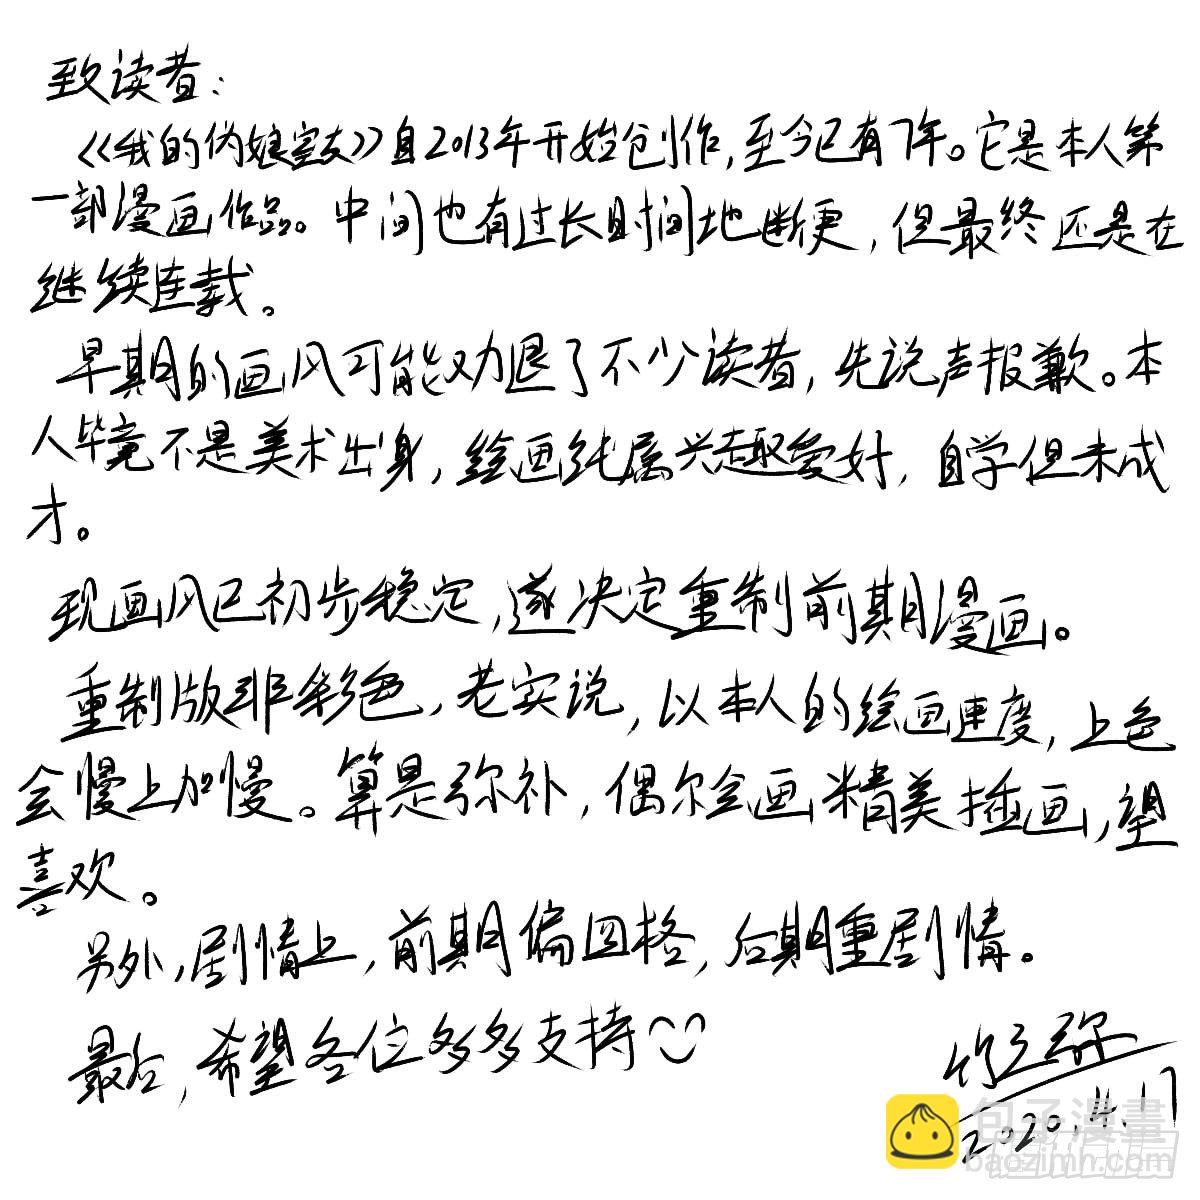 致读者：
《我的伪娘室友》自2013年开始创作，至今已有7年。它是本人第
一部漫画作品。中间也有过长时间地断更，但最终还是在
继续连载。
早期的画风可能劝退了不少读者，先说声报歉。本
人毕竟不是美术出身，绘画纯属兴趣爱好，自学但未成
才。
现画风已初步稳定，遂决定重制前期漫画。
重制版非彩色，老实说，以本人的绘画速度，上色
会慢上加慢。算是弥补，偶尔会画精美插画，望
喜欢。
另外，剧情上，前期偏四格，后期重剧情。
最后，希望各位多多支持
2020.4.17
包子漫畫
baozimh.com